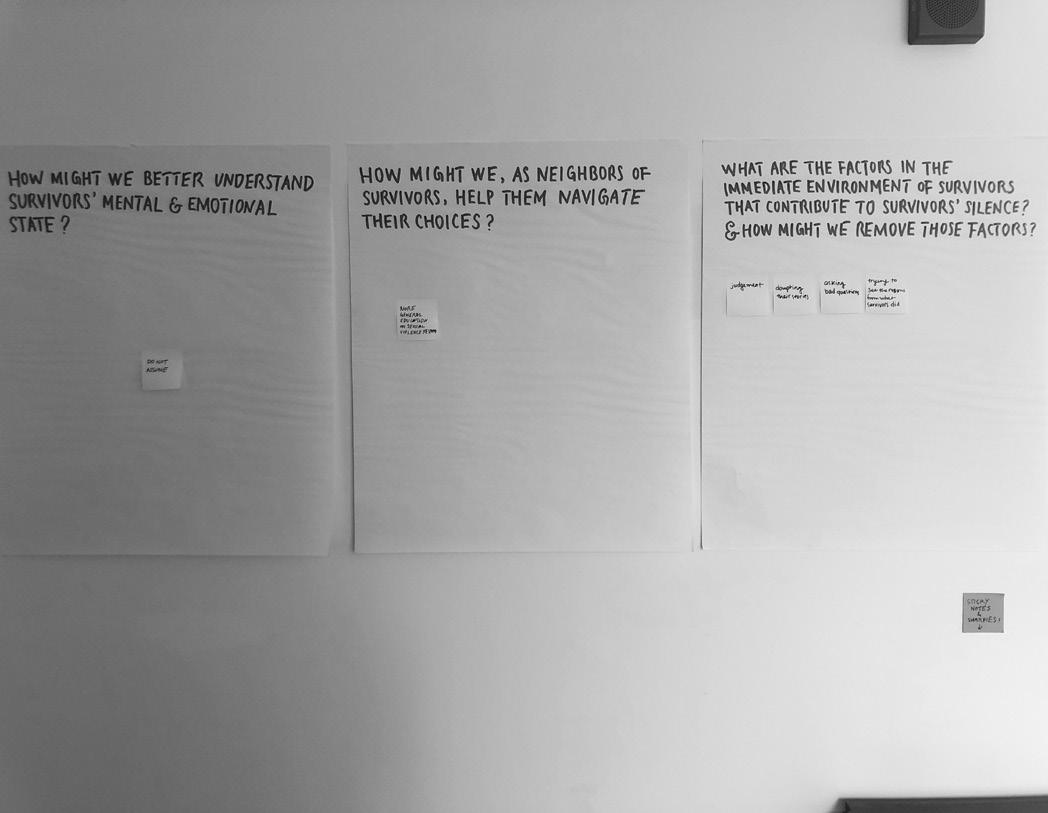 HOW MIGHT WE BETTER UNDERSTAND
SURVIVORS' MENTAL & EMOTIONAL
STATE ?
DO NOT
ASSUME
HOW MIGHT WE, AS NEIGHBORS OF
SURVIVORS, HELP THEM NAVIGATE
THEIR CHOICES ?
MORE
GENERAL
EDUCATION
ON SEXUAL
VIOLENCE
WHAT ARE THE FACTORS IN THE
IMMEDIATE ENVIRONMENT OF SURVIVORS
THAT CONTRIBUTE TO SURVIVORS' SILENCE?
& HOW MIGHT WE REMOVE THOSE FACTORS?
judgement
doubting
their stories
asking
bad questions
trying to
see the reasons
from what
survivors did
STICKY
NOTES
&
SHARPIES!
↓